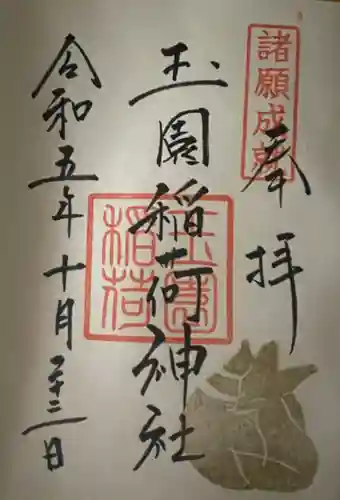 諸願成就
奉拝
玉園稲荷神社
玉園
稲荷
令和五年十月二十三日